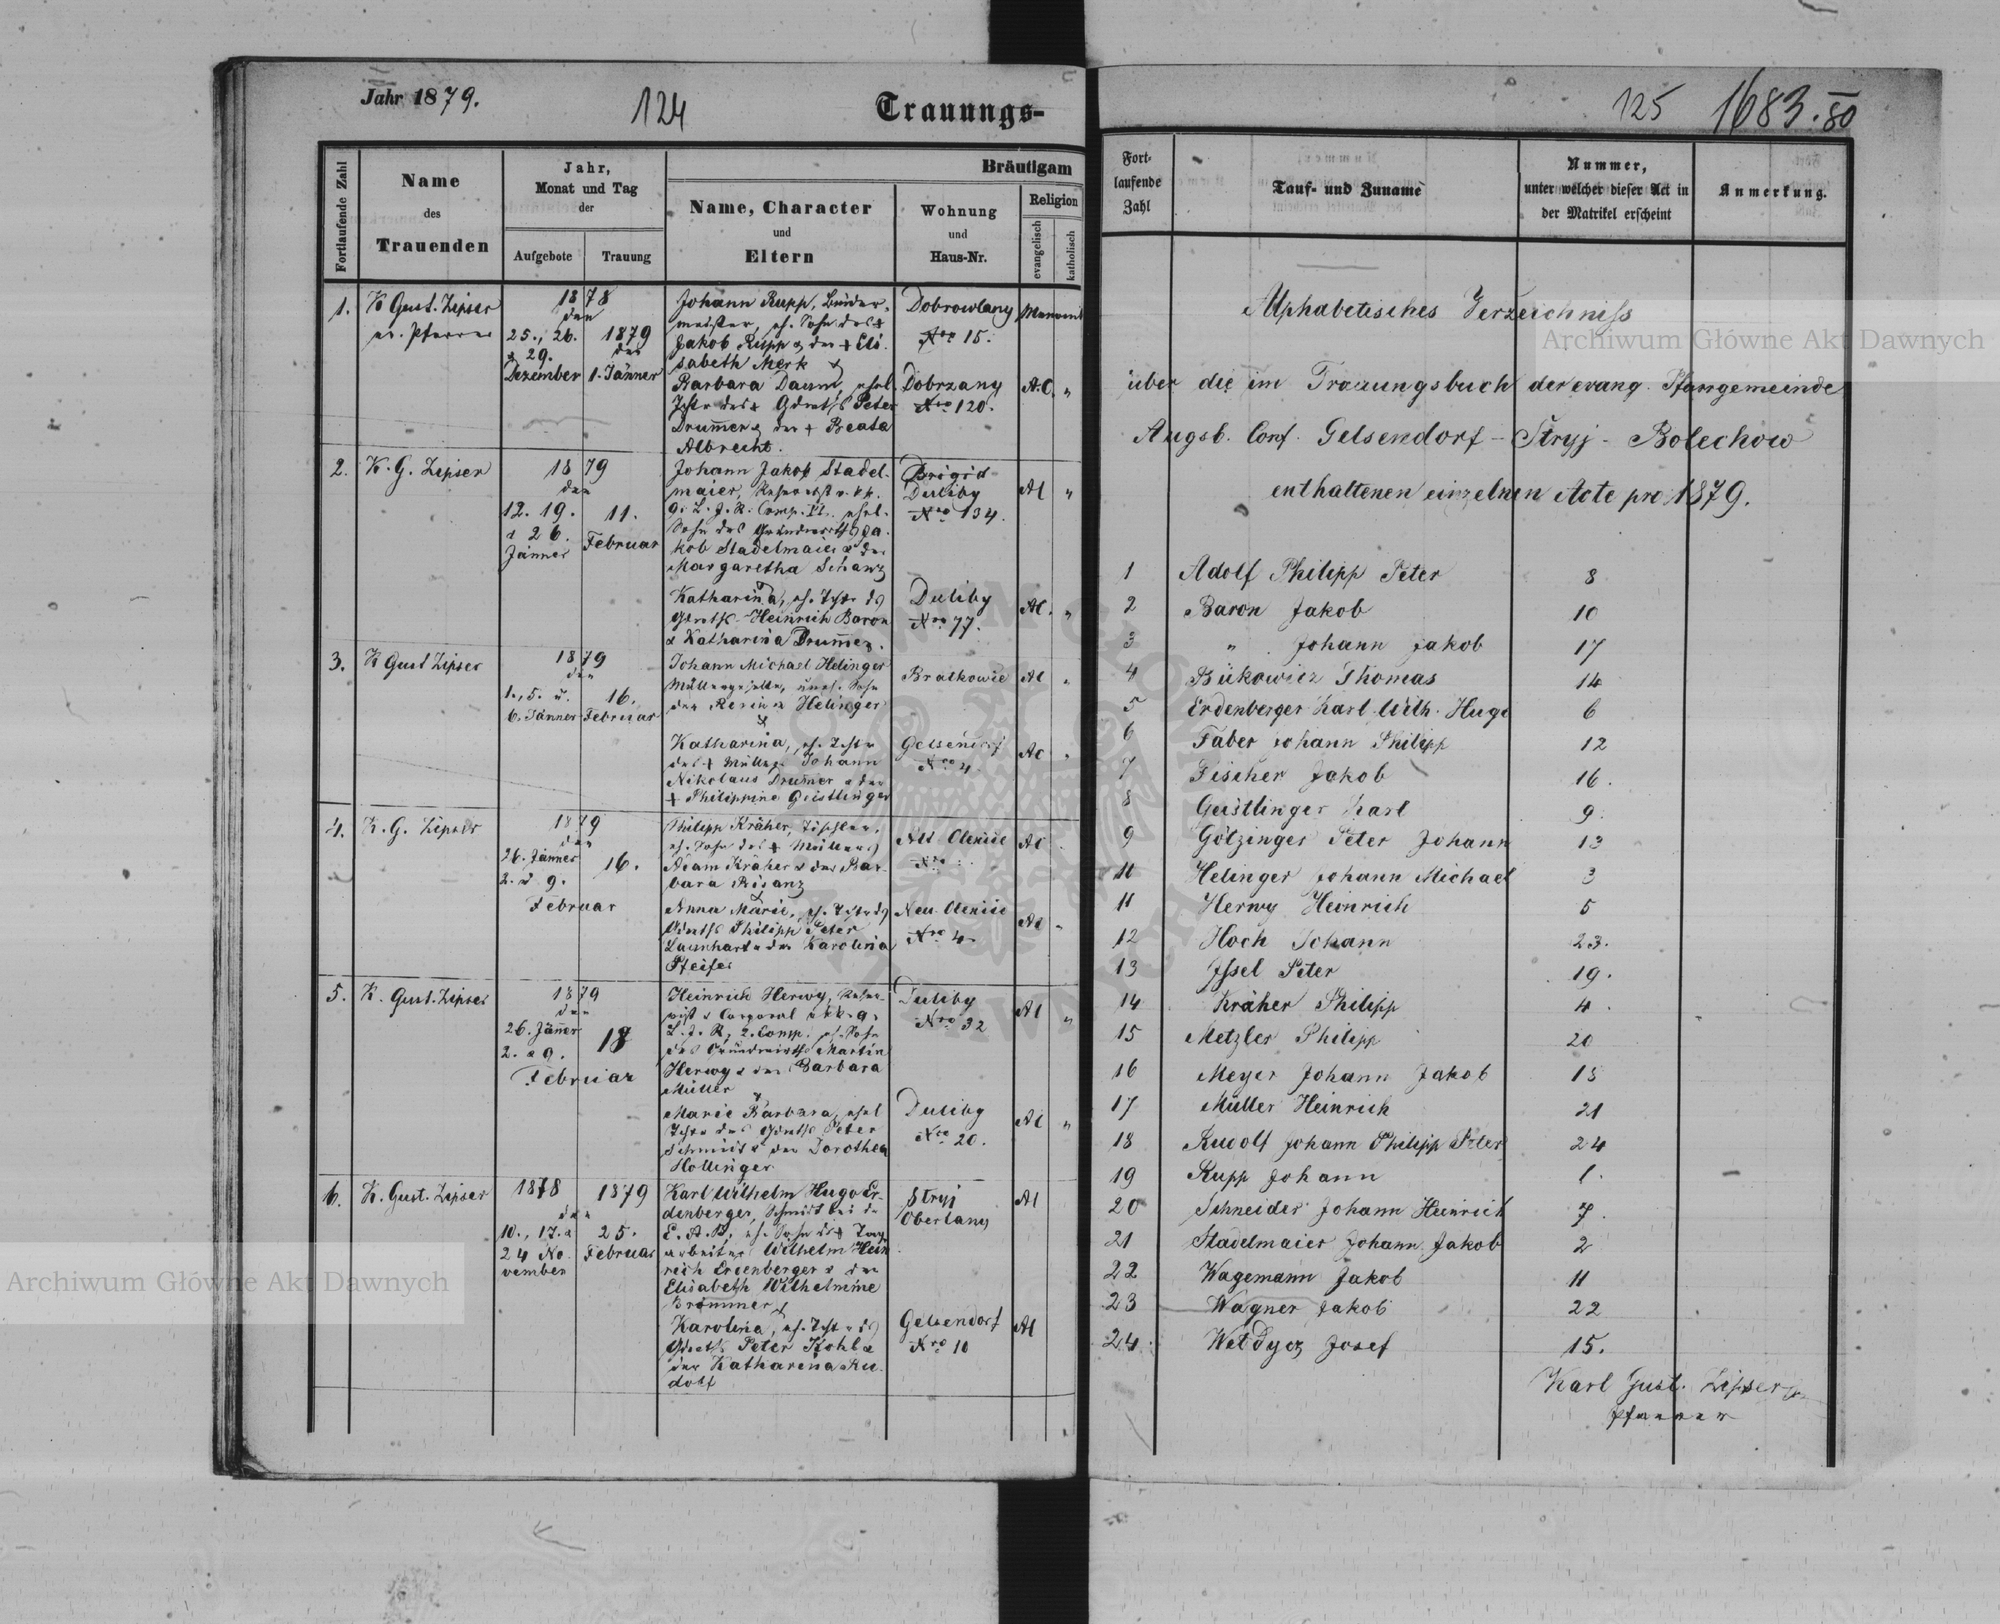 Jahr 1879.
124
Trauungs-
Fortlaufende Zahl
Name
des
Trauenden
Jahr,
Monat und Tag
der
Aufgebote
Trauung
Bräutigam
Name, Character
und
Eltern
Wohnung
und
Haus-Nr.
Religion
evangelisch
katholisch
1.
K Gust. Zipser
ev. Pfarrer
1878
den
25., 26.
& 29.
Dezember
1879
den
1. Jänner
Johann Rupp,
Jakob Rupp & der + Eli
sabeth Merk
&
Barbara Daum, ehel.
Peter
Drum̄er & der + Beata
Albrecht.
Dobrowlany
Nro 15.
Dobrzany
Nro 120.
A.C.
"
2.
K. G. Zipser
1879
den
12. 19.
& 26.
Jänner
11.
Februar
Johann Jakob Stadel-
maier,
kob Stadelmaier & der
Margaretha Schanz
&
Katharina,
Heinrich Baron
& Katharina Drum̄er.
Brigid
Duliby
Nro 134.
Duliby
Nro 77.
AC
"
AC.
"
3.
K Gust Zipser
1879
den
1., 5. u.
6. Jänner
16.
Februar
Johann Michael Helinger
Müllergeselle, uneh. Sohn
der Helinger
&
Katharina, eh. Tochter
des + Müllers Johann
Nikolaus Drum̄er & der
+ Philippine Geistlinger
Bratkowie
Gelsendorf
Nro 4.
AC
AC
4.
K. G. Zipser
1879
den
26. Jänner
2. & 9.
16.
Februar
Philipp Kräher, Tischler,
eh. Sohn des + Müllers
Adam Kräher & der Bar-
bara
&
Anna Marie,
Philipp Peter
Launhart & der Karolina
Pfeifer
Alt Oleksie
Nro
Neu Oleksie
Nro 4
AC
AC
5.
K. Gust. Zipser
1879
den
26. Jän̄er
2. & 9.
18
Februar
Heinrich Herwy,
2. Comp. eh. Sohn
des Grundwirths Martin
Herwy & der Barbara
Müller
&
Marie Barbara, ehel
Peter
Schmidt & der Dorothea
Hollinger
Duliby
Nro 32
Duliby
Nro 20.
AC
"
AC
"
6.
K. Gust. Zipser
1878
den
10., 17. &
24 No-
vember
1879
25.
Februar
Karl Wilhelm Hugo Er-
denberger, Schmidt bei der
arbeiters Wilhelm Hein
rich Erdenberger & der
Elisabeth Wilhelmine
Brommer
&
Karolina,
Peter Kohl &
der Katharina Ru-
dolf
Stryj
Oberlany
Gelsendorf
Nro 10
AC
AC
125
1683.80
Fort-
laufende
Zahl
Tauf- und Zuname
Nummer,
unter welcher dieser Act in
der Matrikel erscheint
Anmerkung.
Alphabetisches Verzeichniss
über die im Trauungsbuch der evang. Pfarrgemeinde
Augsb. Conf. Gelsendorf - Stryj - Bolechow
enthaltenen einzelnen Acte pro 1879.
1 Adolf Philipp Peter 8
2 Baron Jakob 10
3 " Johann Jakob 17
4 Bukowicz Thomas 14
5 Erdenberger Karl Wilh. Hugo 6
6 Faber Johann Philipp 12
7 Fischer Jakob 16.
8 Geistlinger Karl 9.
9 Götzinger Peter Johann 13
11 Helinger Johann Michael 3
11 Herwy Heinrich 5
12 Hoch Johann 23.
13 Issel Peter 19.
14 Kräher Philipp 4.
15 Metzler Philipp 20
16 Meyer Johann Jakob 18
17 Müller Heinrich 21
18 Rudolf Johann Philipp Peter 24
19 Rupp Johann 1.
20 Schneider Johann Heinrich 7.
21 Stadelmaier Johann Jakob 2
22 Wagemann Jakob 11
23 Wagner Jakob 22
24. Weldycz Josef 15.
Karl Gust. Zipser
Pfarrer
Archiwum Główne Akt Dawnych
Archiwum Główne Akt Dawnych